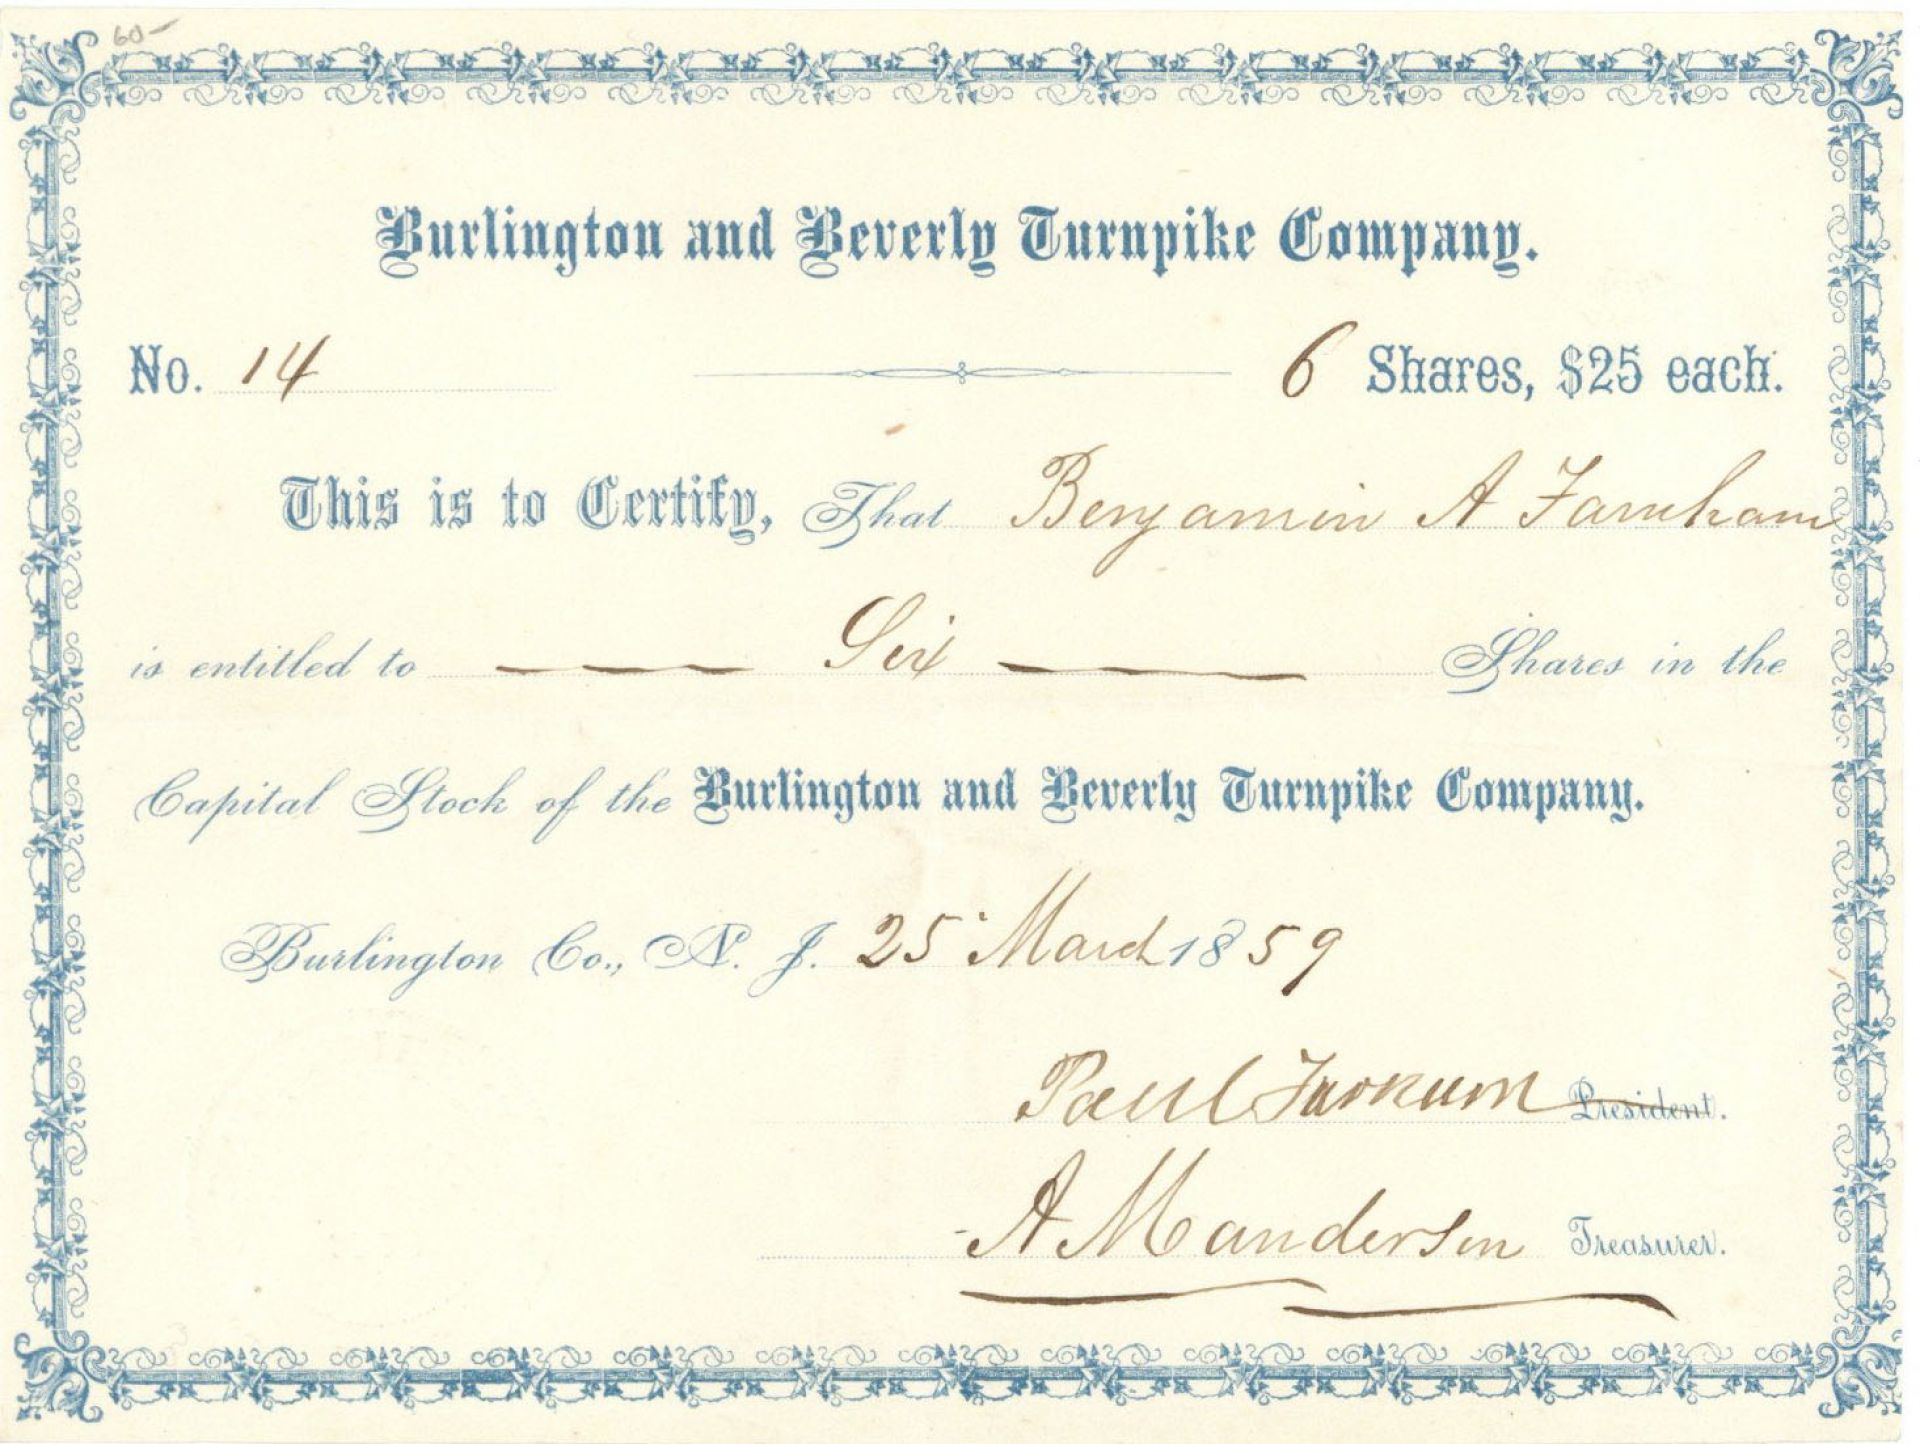 60-
Burlington and Beverly Turnpike Company.
No. 14 6 Shares, $25 each.
This is to Certify, That Benjamin A Farnham
is entitled to Six Shares in the
Capital Stock of the Burlington and Beverly Turnpike Company.
Burlington Co., N. J. 25 March 1859
Paul President.
A M Treasurer.